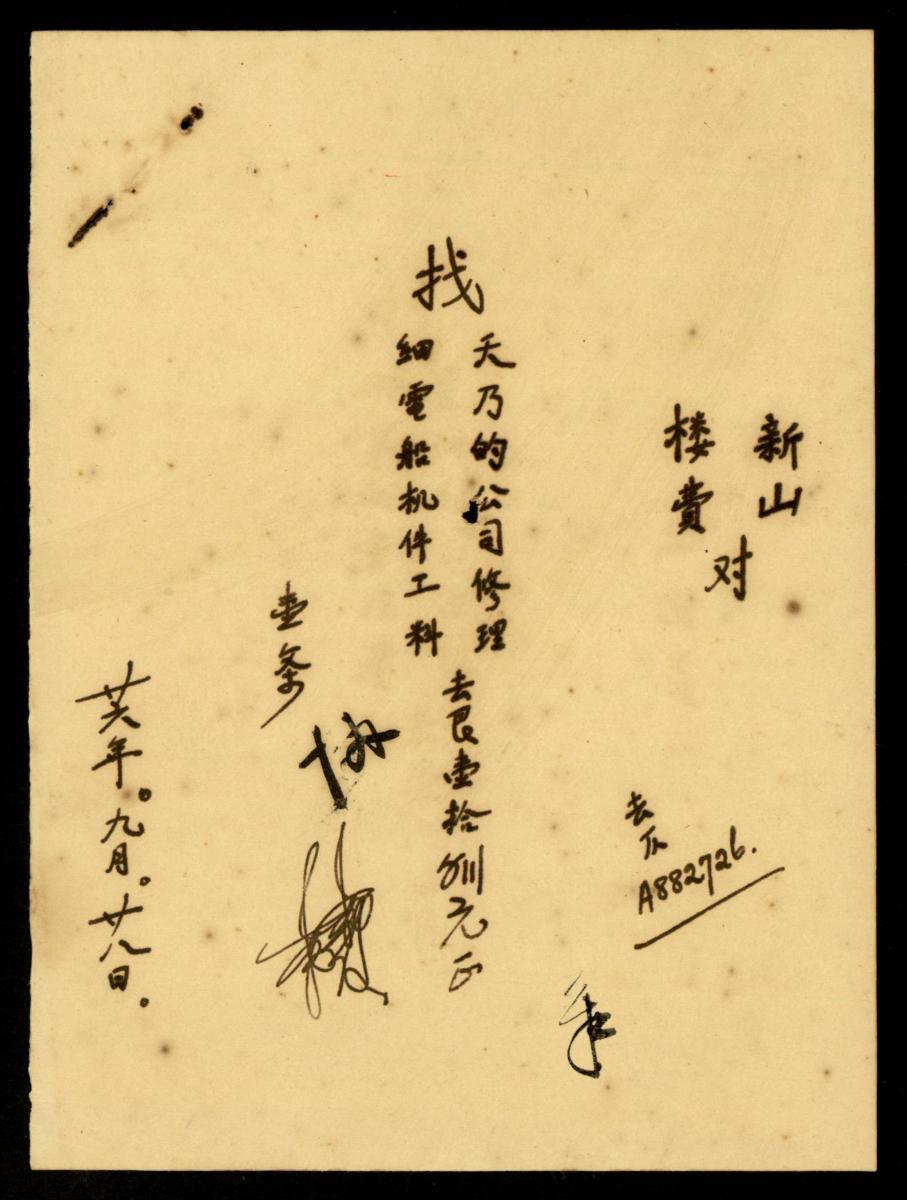 新山
楼費
对
找
天乃的公司修理
細電船机件工料
去艮壹拾捌元正
去仄
A882726.
壹条
廿六年。九月。廿八日。